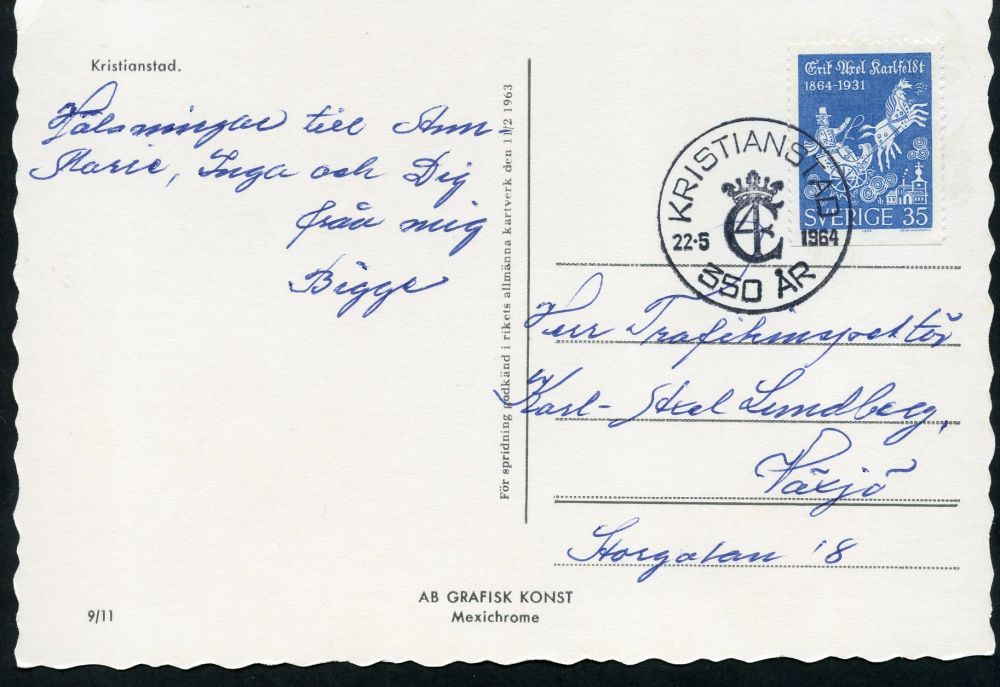 Kristianstad.
Hälsningar till Ann-
Marie, Inga och Dig
från mig
Bigge
För spridning godkänd i rikets allmänna kartverk den 11/2 1963
Erik Axel Karlfeldt
1864-1931
SVERIGE 35
KRISTIANSTAD
22·5 1964
350 ÅR
Herr Trafikinspektör
Karl-Axel Lundberg,
Växjö
Storgatan 18
AB GRAFISK KONST
Mexichrome
9/11